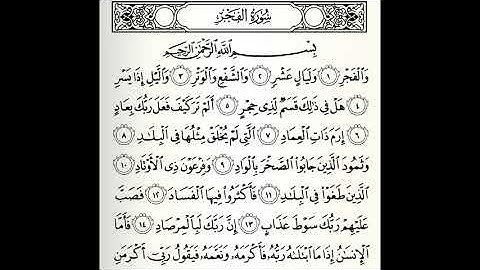 سُورَةُ الفَجْرِ
بِسْمِ اللَّهِ الرَّحْمَٰنِ الرَّحِيمِ
وَالْفَجْرِ ١ وَلَيَالٍ عَشْرٍ ٢ وَالشَّفْعِ وَالْوَتْرِ ٣ وَاللَّيْلِ إِذَا يَسْرِ
٤ هَلْ فِي ذَٰلِكَ قَسَمٌ لِذِي حِجْرٍ ٥ أَلَمْ تَرَ كَيْفَ فَعَلَ رَبُّكَ بِعَادٍ
٦ إِرَمَ ذَاتِ الْعِمَادِ ٧ الَّتِي لَمْ يُخْلَقْ مِثْلُهَا فِي الْبِلَادِ ٨
وَثَمُودَ الَّذِينَ جَابُوا الصَّخْرَ بِالْوَادِ ٩ وَفِرْعَوْنَ ذِي الْأَوْتَادِ ١٠
الَّذِينَ طَغَوْا فِي الْبِلَادِ ١١ فَأَكْثَرُوا فِيهَا الْفَسَادَ ١٢ فَصَبَّ
عَلَيْهِمْ رَبُّكَ سَوْطَ عَذَابٍ ١٣ إِنَّ رَبَّكَ لَبِالْمِرْصَادِ ١٤ فَأَمَّا
الْإِنسَانُ إِذَا مَا ابْتَلَاهُ رَبُّهُ فَأَكْرَمَهُ وَنَعَّمَهُ فَيَقُولُ رَبِّي أَكْرَمَنِ